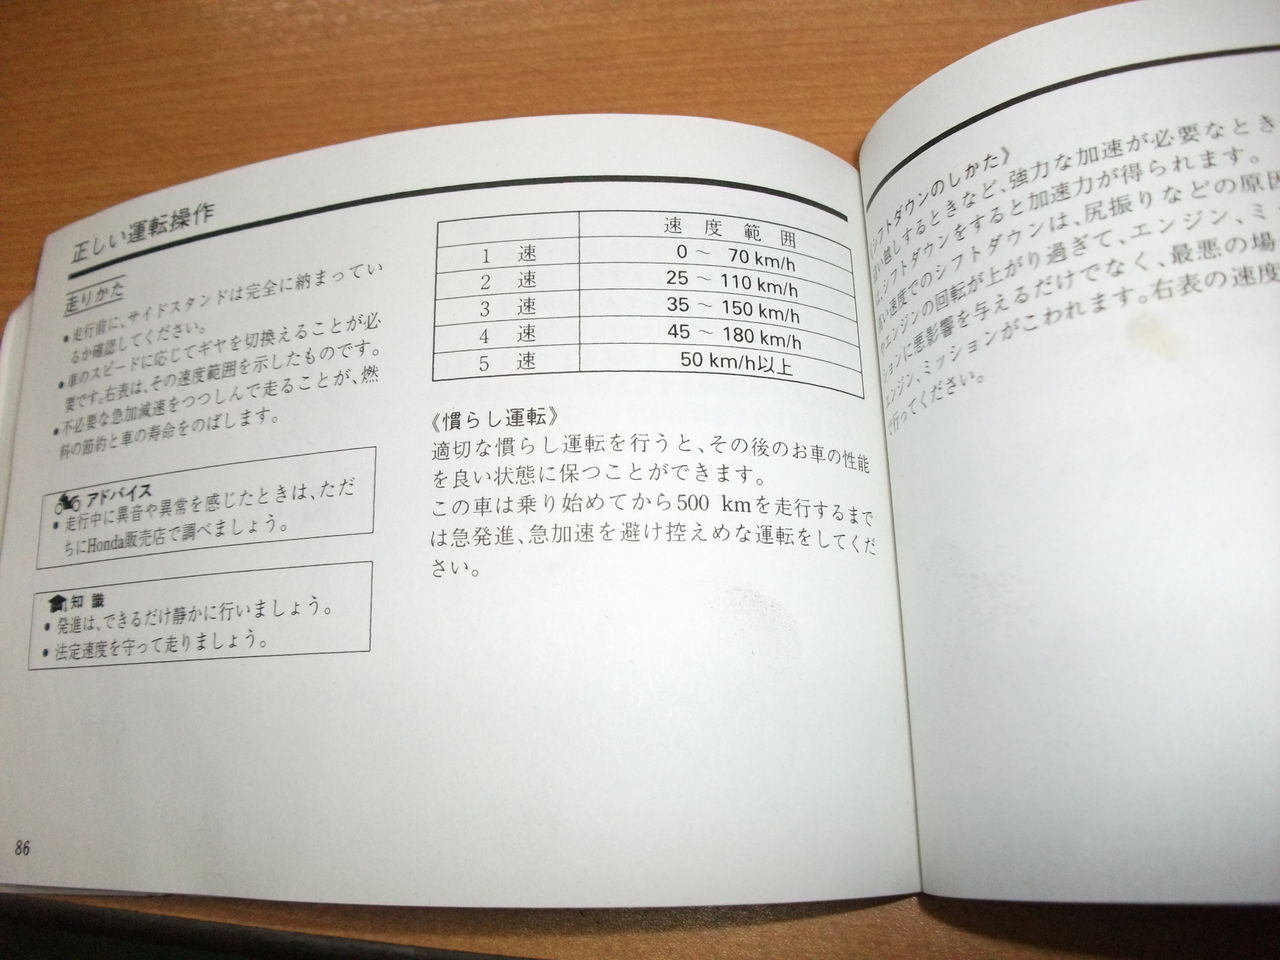 正しい運転操作
走りかた
●走行前に、サイドスタンドは完全に納まってい
るか確認してください。
●車のスピードに応じてギヤを切換えることが必
要です。右表は、その速度範囲を示したものです。
●不必要な急加減速をつつしんで走ることが、燃
料の節約と車の寿命をのばします。
アドバイス
●走行中に異音や異常を感じたときは、ただ
ちにHonda販売店で調べましょう。
知識
●発進は、できるだけ静かに行いましょう。
●法定速度を守って走りましょう。
速度範囲
1速 0～70 km/h
2速 25～110 km/h
3速 35～150 km/h
4速 45～180 km/h
5速 50 km/h以上
《慣らし運転》
適切な慣らし運転を行うと、その後のお車の性能
を良い状態に保つことができます。
この車は乗り始めてから500 kmを走行するまで
は急発進、急加速を避け控えめな運転をしてくだ
さい。
86
《シフトダウンのしかた》
越しするときなど、強力な加速が必要なとき
シフトダウンをすると加速力が得られます。
速度でのシフトダウンは、尻振りなどの原因
エンジンの回転が上がり過ぎて、エンジン、ミ
ションに悪影響を与えるだけでなく、最悪の場
エンジン、ミッションがこわれます。右表の速度
で行ってください。